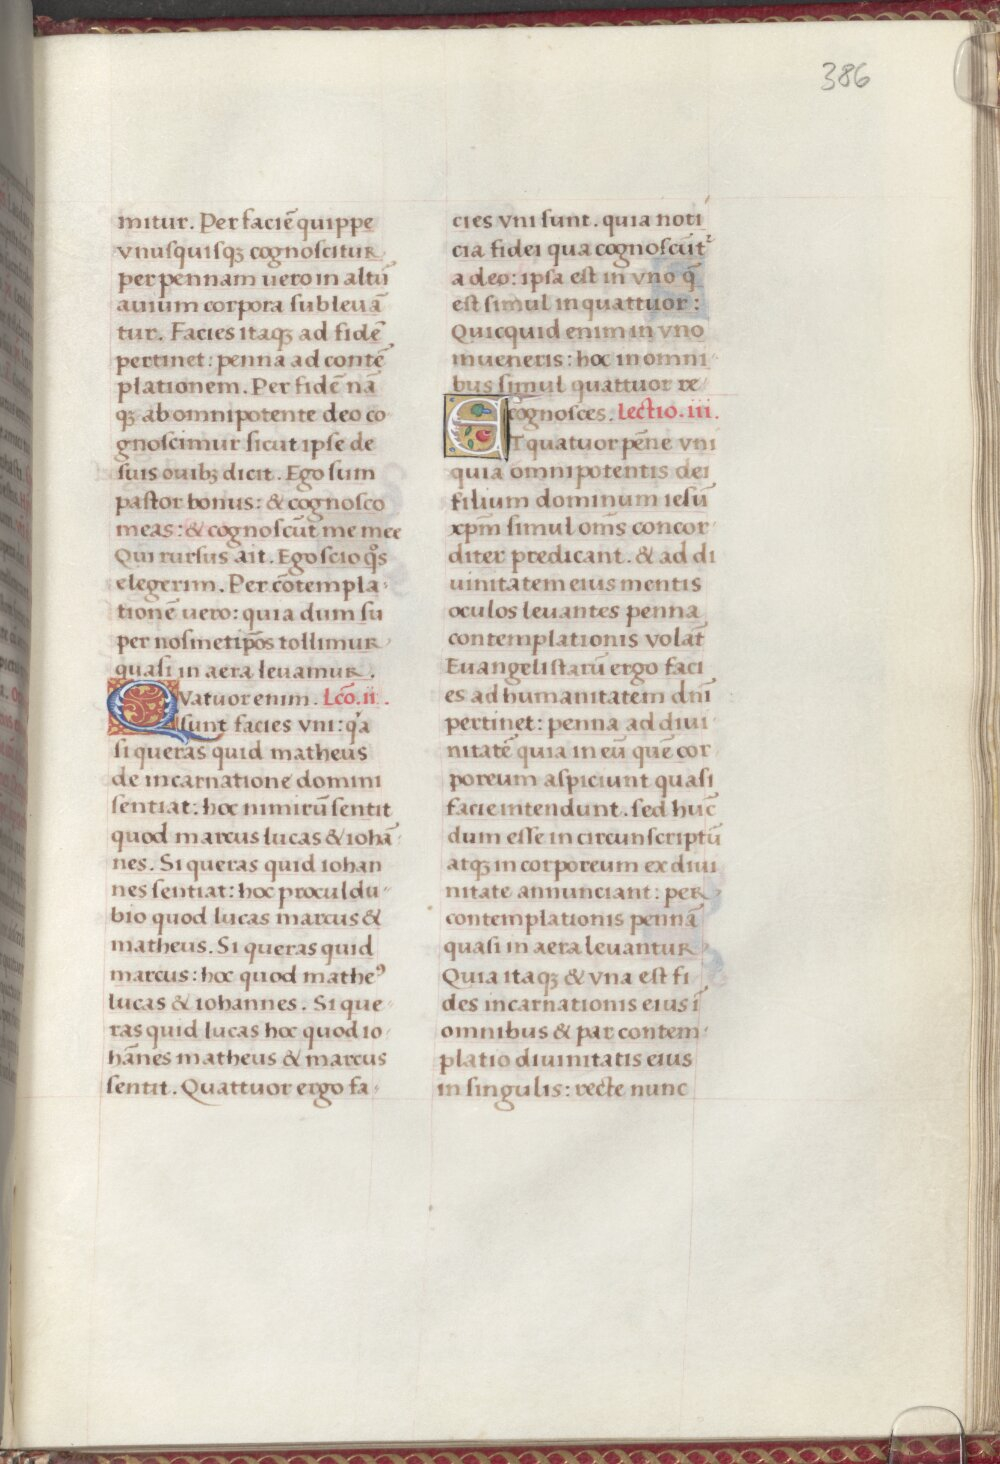 386
mitur. Per faciē quippe
vnusquisqꝫ cognoscitur
per pennam uero in altū
auium corpora subleuā
tur. Facies itaqꝫ ad fidē
pertinet: penna ad contē
plationem. Per fidē nā
qꝫ ab omnipotente deo co
gnoscimur sicut ipse de
suis ouibꝫ dicit. Ego sum
pastor bonus: & cognosco
meas: & cognoscūt me mee
Qui rursus ait. Ego scio qͦs
elegerim. Per cōtempla
tionē uero: quia dum su
per nosmetipōs tollimur
quasi in aera leuamur.
QVatuor enim. Lcō.ii.
sunt facies vni: qͥa
si queras quid matheus
de incarnatione domini
sentiat: hoc nimirū sentit
quod marcus lucas & iohā
nes. Si queras quid iohan
nes sentiat: hoc proculdu
bio quod lucas marcus &
matheus. Si queras quid
marcus: hoc quod matheꝰ
lucas & iohannes. Si que
ras quid lucas hoc quod io
hānes matheus & marcus
sentit. Quattuor ergo fa
cies vni sunt. quia noti
cia fidei qua cognoscūt᷑
a deo: ipsa est in vno q̄
est simul in quattuor:
Quicquid enim in vno
inueneris: hoc in omni
bus simul quattuor re
cognosces. Lectio.iii.
ET quatuor pēne vni
quia omnipotentis dei
filium dominum iesū
xpm̄ simul om̄s concor
diter predicant. & ad di
uinitatem eius mentis
oculos leuantes penna
contemplationis volāt
Euangelistarū ergo faci
es ad humanitatem dn̄i
pertinet: penna ad diui
nitatē quia in eū quē cor
poreum aspiciunt quasi
facie intendunt. sed huc̄
dum esse in circunscriptū
atqꝫ in corporeum ex diui
nitate annunciant: per
contemplationis pennā
quasi in aera leuantur
Quia itaqꝫ & vna est fi
des incarnationis eius ī
omnibus & par contem
platio diuinitatis eius
in singulis: recte nunc